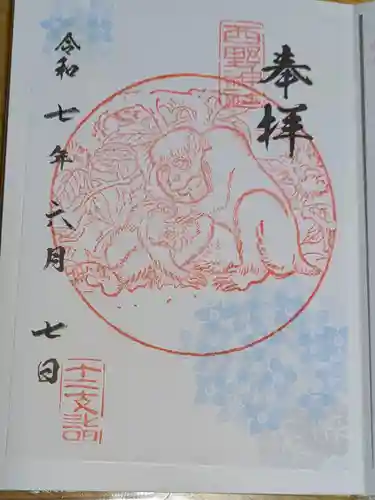 奉拝
西野神社
令和七年六月七日
十二支詣